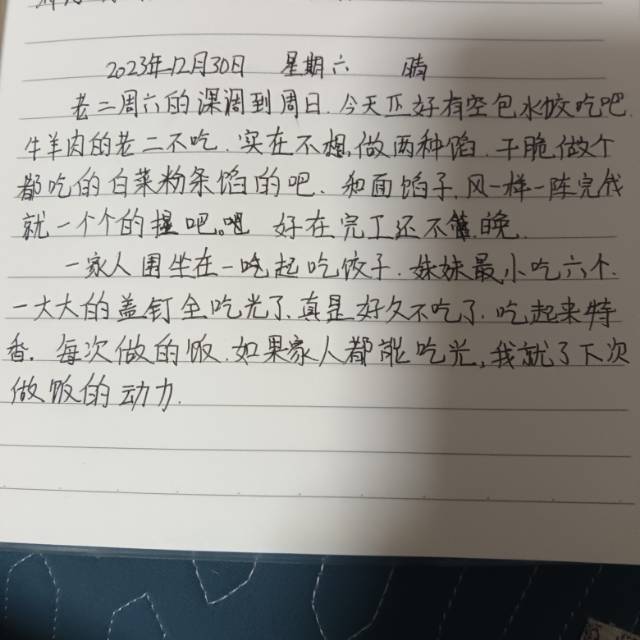 2023年12月30日 星期六 晴
老二周六的深调到周日.今天正好有空包水饺吃吧.
牛羊肉的老二不吃.实在不想,做两种馅.干脆做个
都吃的白菜粉条馅的吧.和面馅子.风一样一阵完成
就一个个的握吧。 好在完工还不算晚.
一家人围坐在一起吃饺子.妹妹最小吃六个.
一大大的盖钉全吃光了.真是好久不吃了.吃起来特
香. 每次做的饭.如果家人都能吃光,我就了下次
做饭的动力.